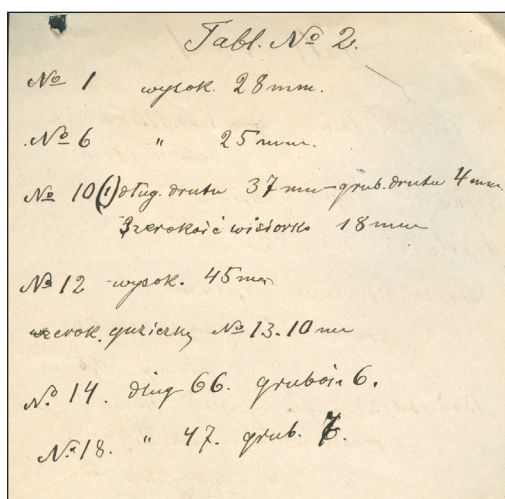 Tabl. № 2.
№ 1 wysok. 28 mm.
№ 6 " 25 mm.
№ 10(1) dług. drutu 37 mm grub. drutu 4 mm.
Szerokość wisiorka 18 mm
№ 12 wysok. 45 mm
szerok. guziczka № 13. 10 mm
№ 14. dług 66. grubość 6.
№ 18. " 47. grub. 7.